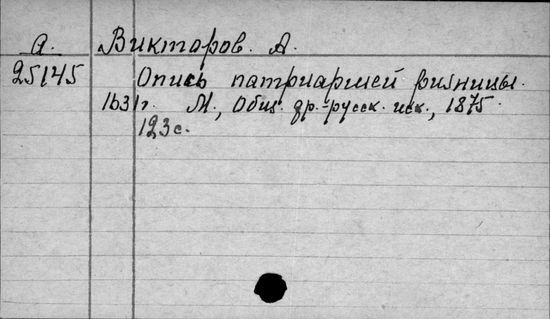 А. Викторов. А.
25145 Опись патриаршей ризницы.
1631г. М., Общ. др.-русск. иск., 1875.
123 с.